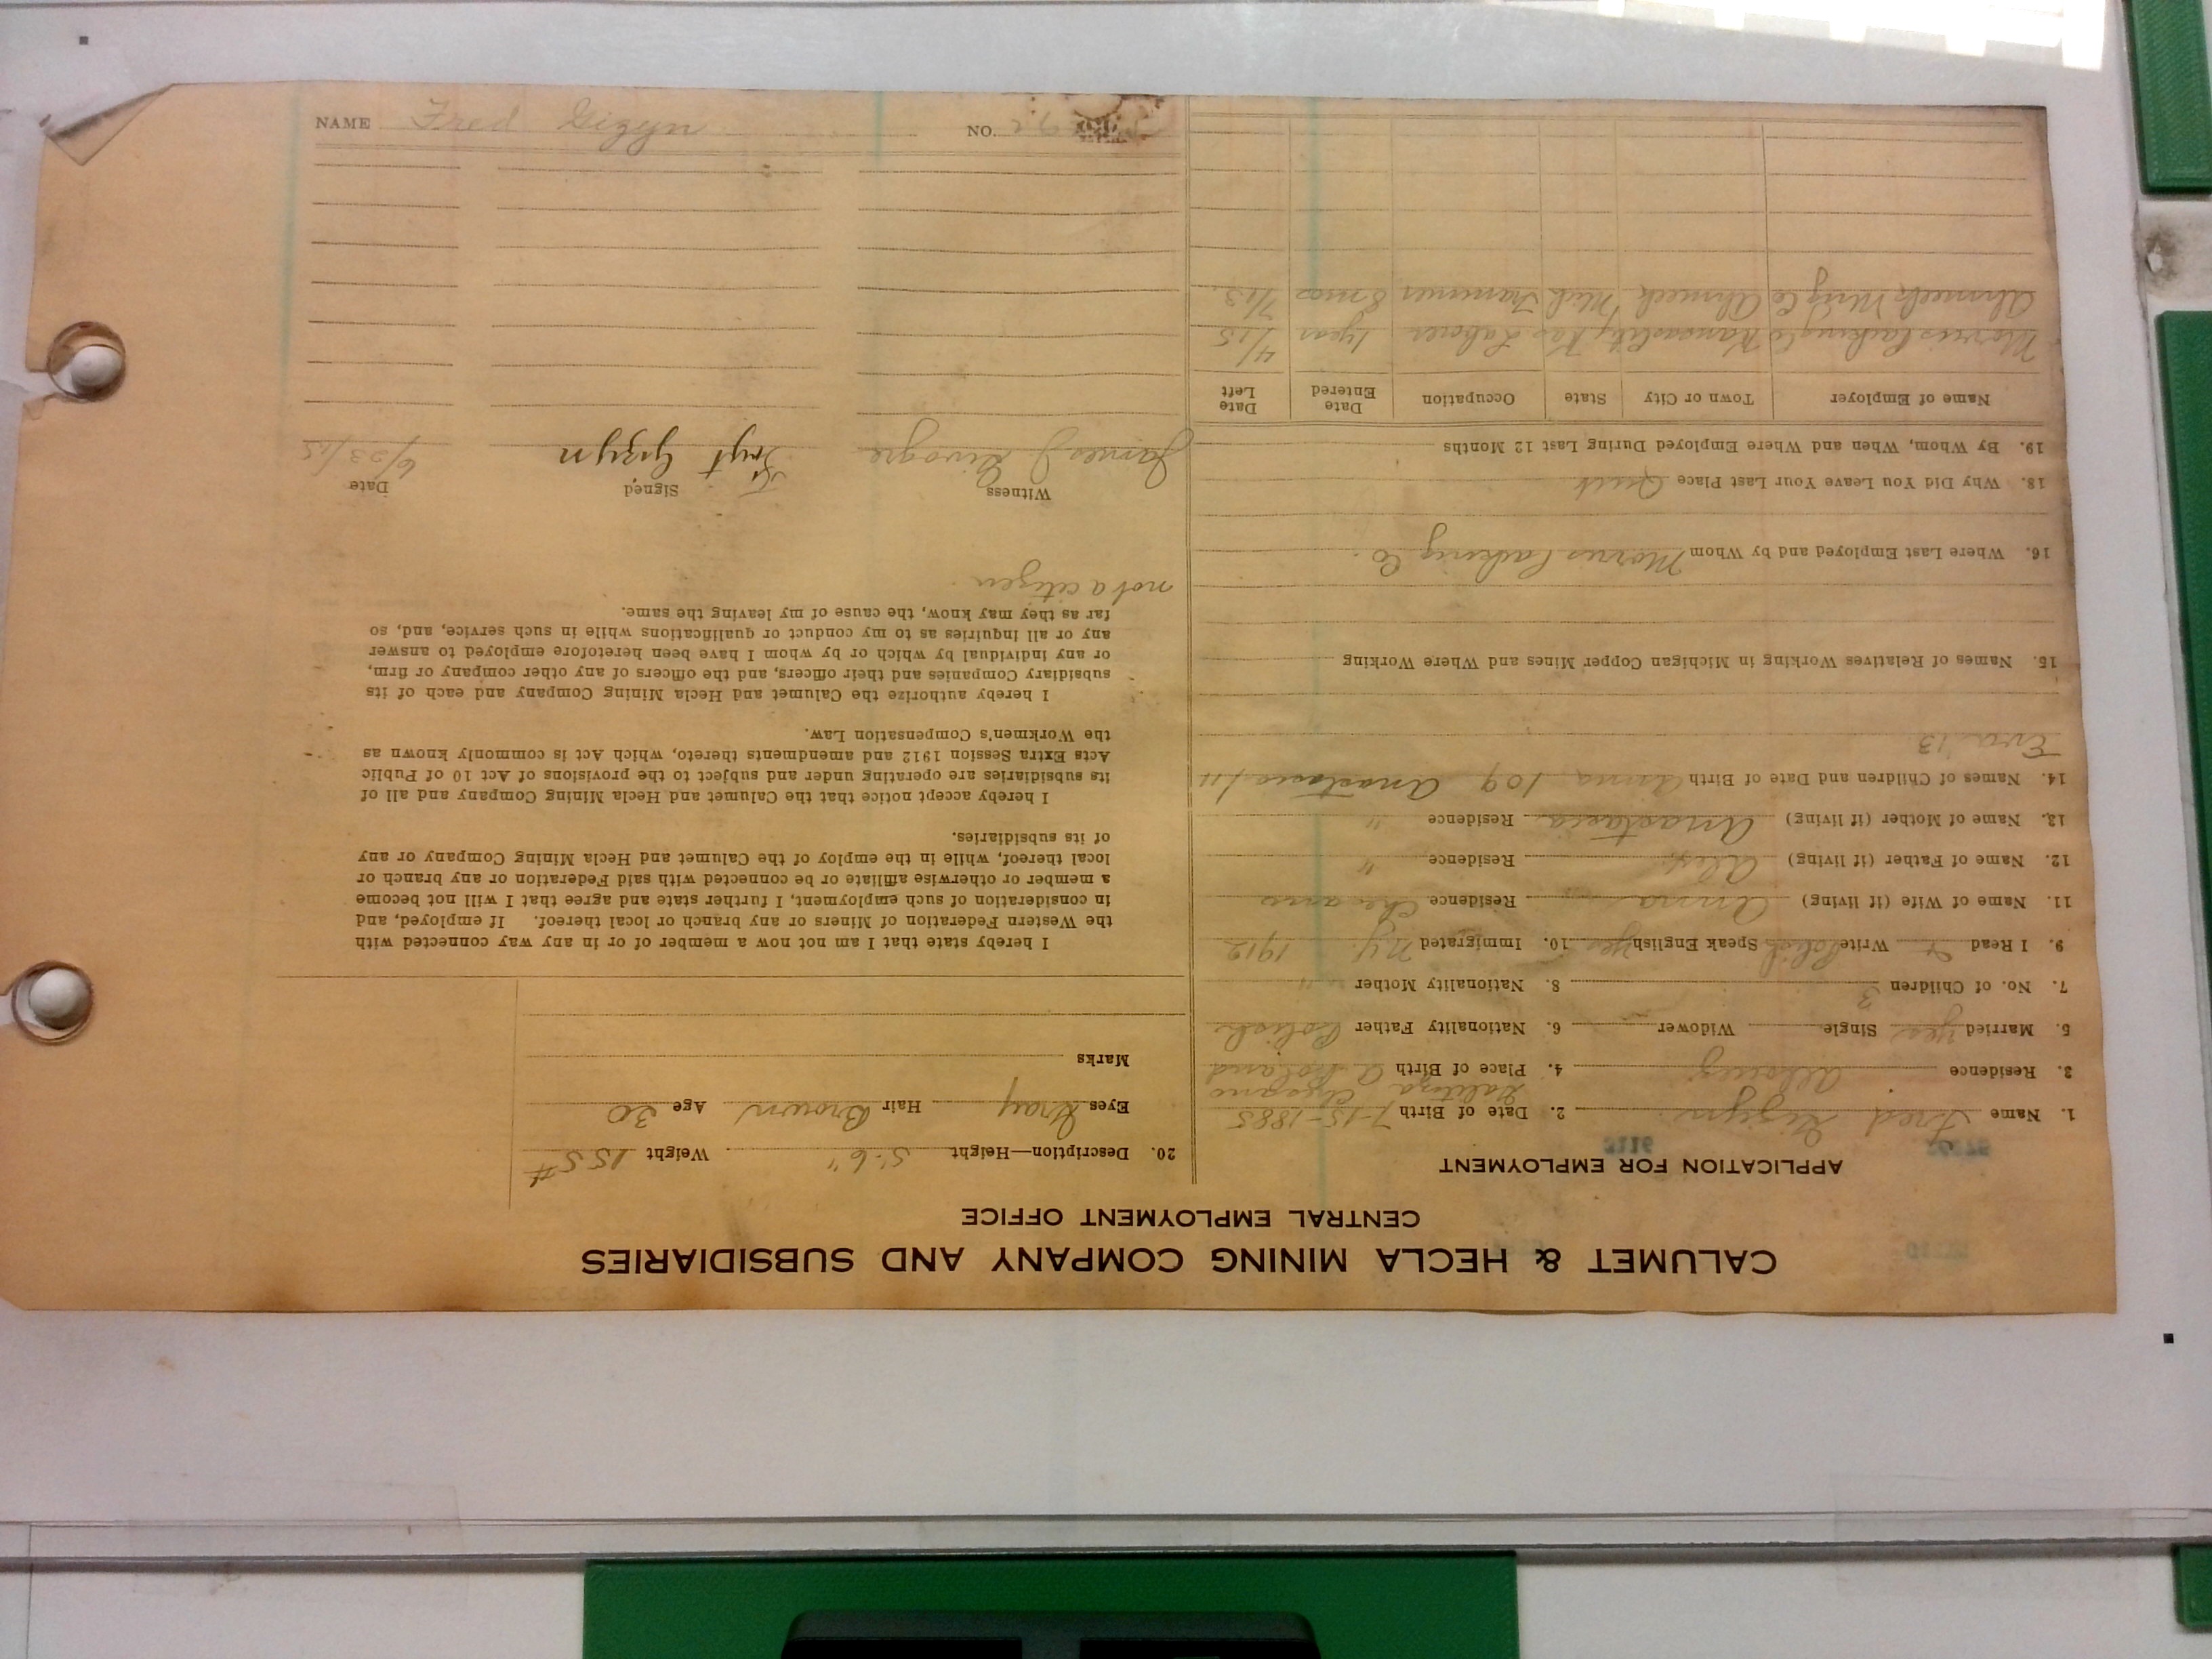 CALUMET & HECLA MINING COMPANY AND SUBSIDIARIES
CENTRAL EMPLOYMENT OFFICE
APPLICATION FOR EMPLOYMENT
1. Name Fred Gizyn 2. Date of Birth 7-15-1885
3. Residence Allouez 4. Place of Birth Poland
5. Married yes Single Widower 6. Nationality Father Polish
7. No. of Children 3 8. Nationality Mother "
9. I Read & Write Polish Speak English yes 10. Immigrated N.Y. 1912
11. Name of Wife (if living) Anna Residence
12. Name of Father (if living) Alex Residence "
13. Name of Mother (if living) Anastasia Residence "
14. Names of Children and Date of Birth Anna 109 Anastasia /11
Eva '13
15. Names of Relatives Working in Michigan Copper Mines and Where Working
16. Where Last Employed and by Whom Morris Packing Co.
18. Why Did You Leave Your Last Place Quit
19. By Whom, When and Where Employed During Last 12 Months
Name of Employer Town or City State Occupation Date Entered Date Left
Morris Packing Co Kansas City Kas Laborer 1 year 4/15
Ahmeek Mng Co Ahmeek Mich Trammer 8 mos 7/13
20. Description—Height 5'-6" Weight 155#
Eyes Gray Hair Brown Age 30
Marks
I hereby state that I am not now a member of or in any way connected with
the Western Federation of Miners or any branch or local thereof. If employed, and
in consideration of such employment, I further state and agree that I will not become
a member or otherwise affiliate or be connected with said Federation or any branch or
local thereof, while in the employ of the Calumet and Hecla Mining Company or any
of its subsidiaries.
I hereby accept notice that the Calumet and Hecla Mining Company and all of
its subsidiaries are operating under and subject to the provisions of Act 10 of Public
Acts Extra Session 1912 and amendments thereto, which Act is commonly known as
the Workmen's Compensation Law.
I hereby authorize the Calumet and Hecla Mining Company and each of its
subsidiary Companies and their officers, and the officers of any other company or firm,
or any individual by which or by whom I have been heretofore employed to answer
any or all inquiries as to my conduct or qualifications while in such service, and, so
far as they may know, the cause of my leaving the same.
not a citizen
Witness Signed Date
James J. Fryt Gizyn 6/23/15
NAME Fred Gizyn NO.